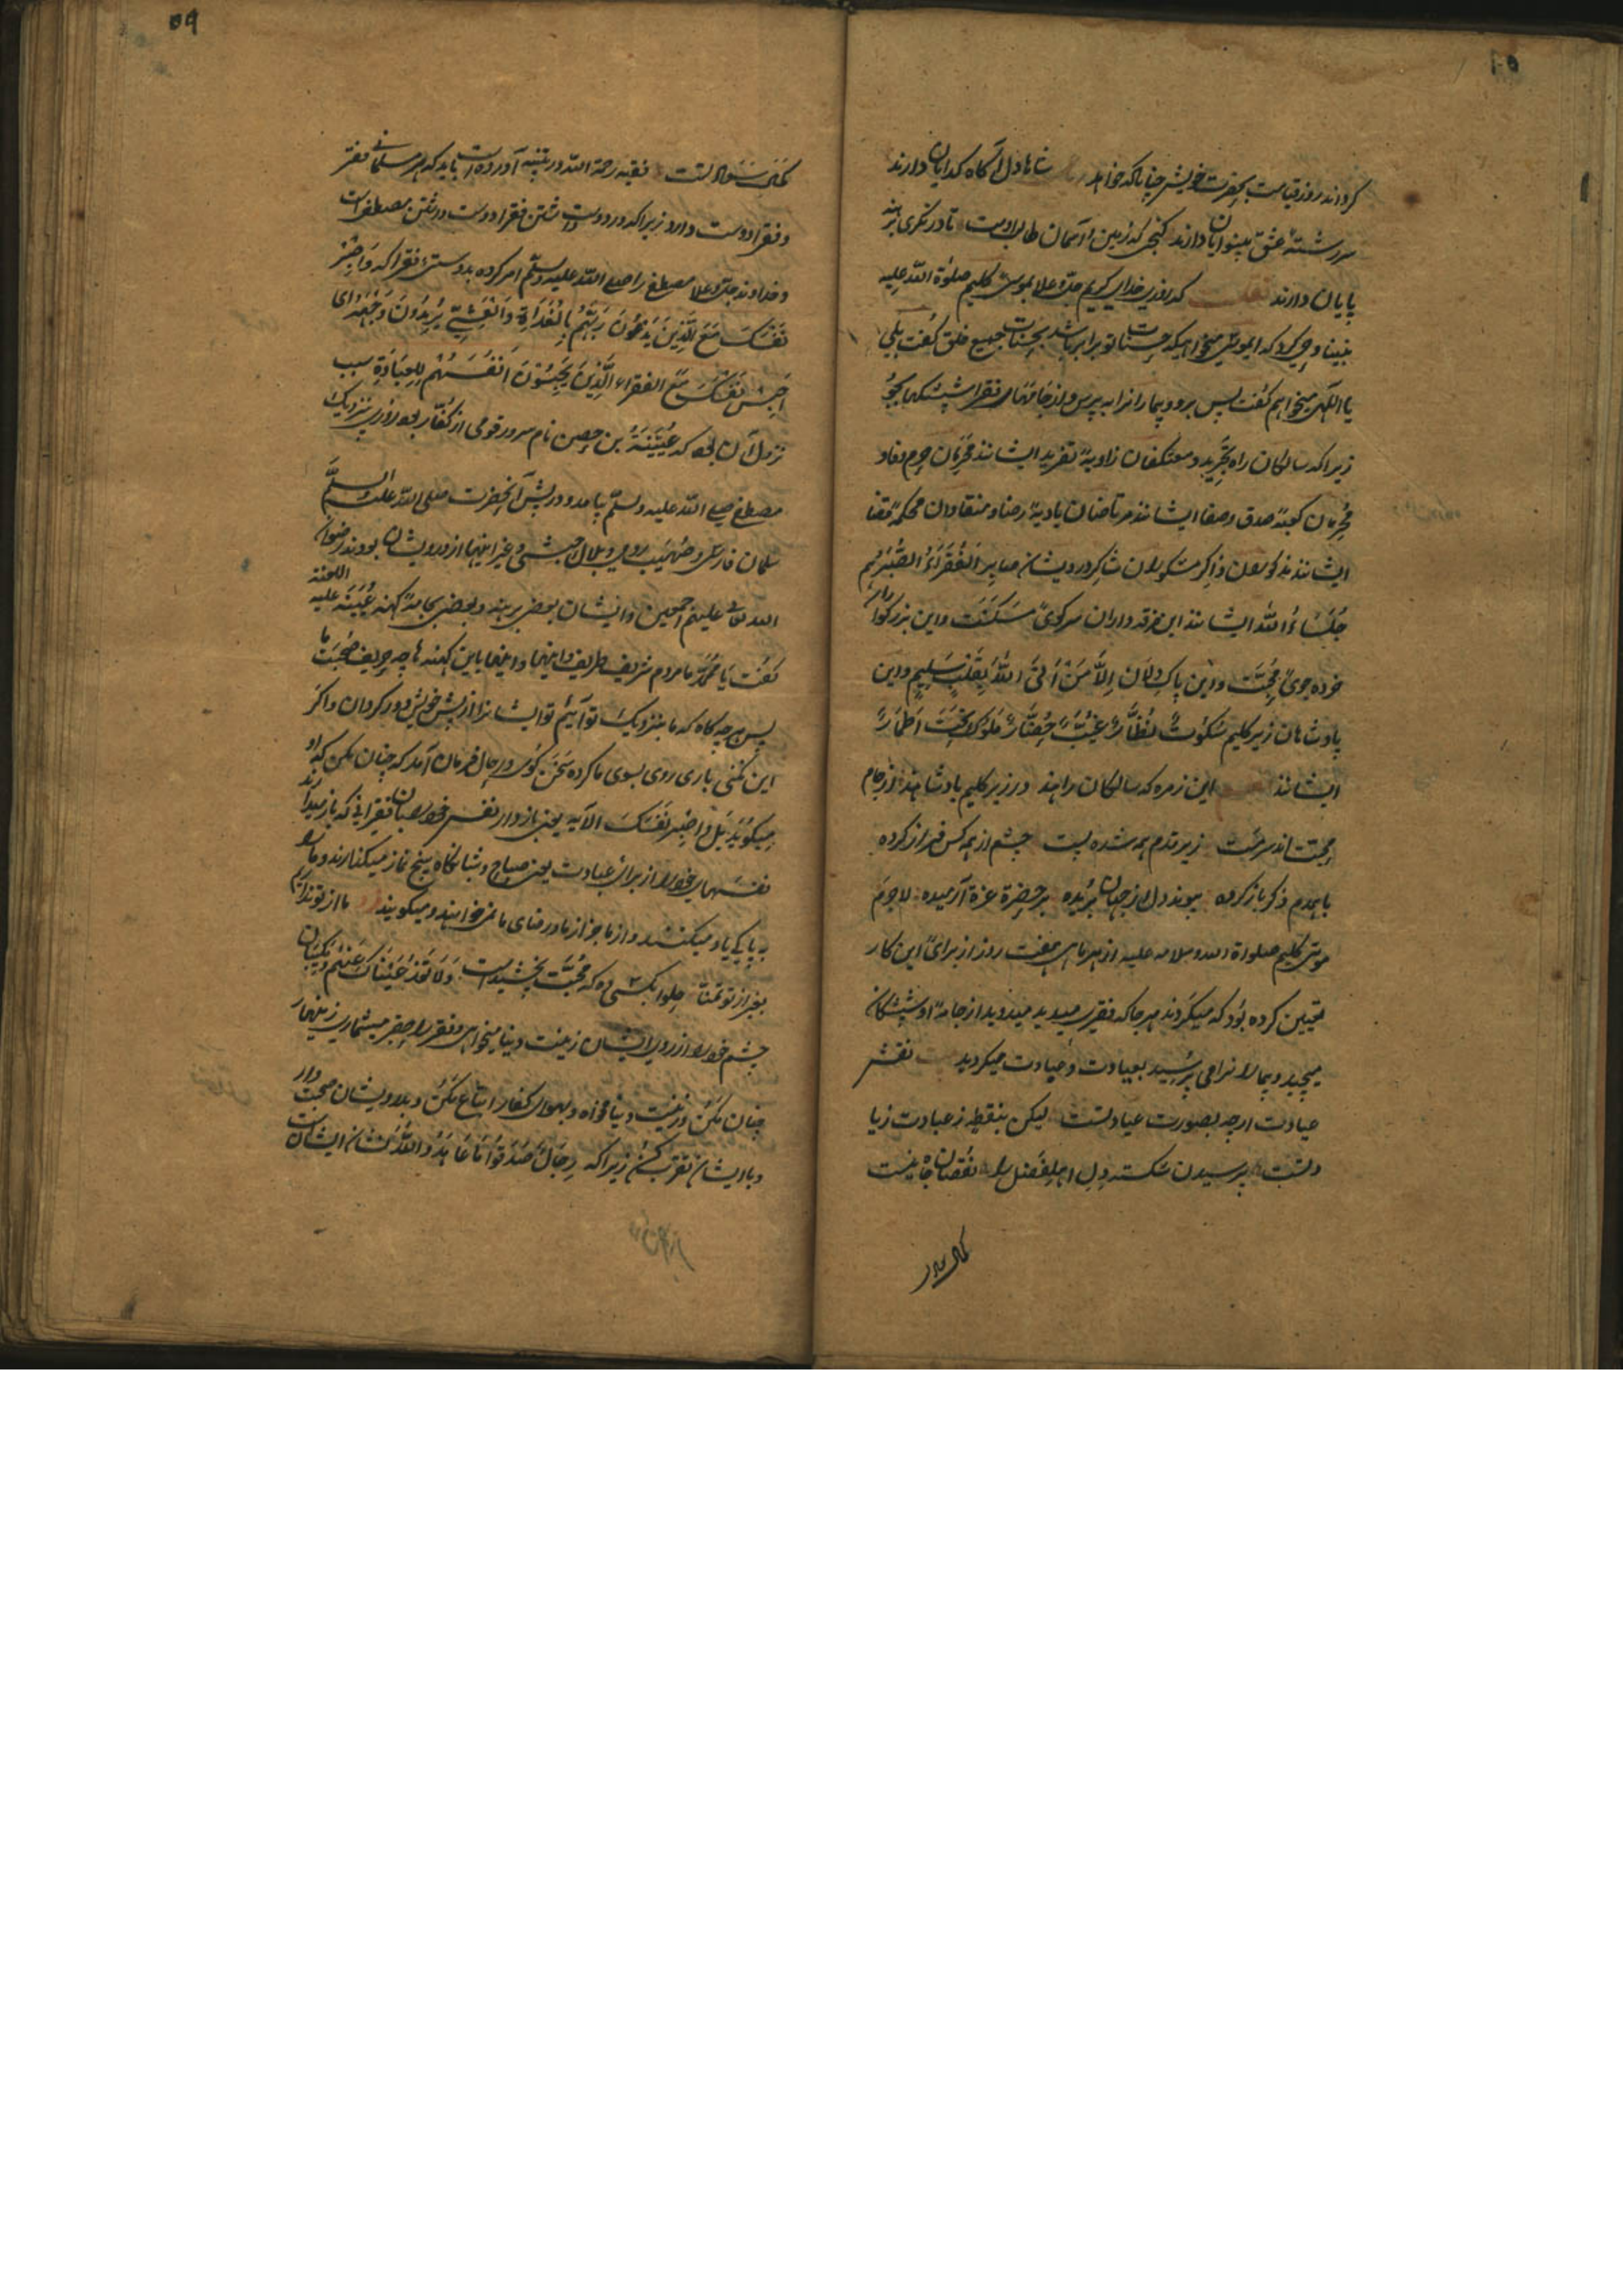 کرداند روز قیامت بحضرت خویش چنانکه خواهد شاها دل آگاه گدایان دارند
سر رشتهٔ عشق بینوایان دارند گنجی که زمین و آسمان طالب اوست تا درنگری برهنه
پایان دارند که روزی خدای کریم جل و علا بموسی کلیم صلوة الله علیه
نبینا وحی کرد که ای موسی میخواهی که حسنات تو برابر باشد بحسنات جمیع خلق گفت بلی
یا الهی میخواهم گفت پس برو و بیمارانرا به پرس و از جامهای فقرا شپشکها بجو
زیرا که سالکان راه تجرید و معتکفان زاویهٔ تفرید ایشانند محرمان حرم وفا و
محرمان کعبهٔ صدق و صفا ایشانند مرتاضان بادیهٔ رضا و منقادان محکمهٔ قضا
ایشانند مذکوران ذاکر مشکوران شاکر درویشان صابر الفقراء الصبر هم
جلساء الله ایشانند این خرقه داران سر کوی مسکنت و این بزرگوار
خرده جوی محبت و این پاک دلان الا من اتی الله بقلب سلیم و این
پادشاهان زیر گلیم سکوت نظار غیب حضار ملوک تحت اطمار
ایشانند این زمره که سالکان راهند در زیر گلیم پادشاهند از جام
محبت اند سرمست زیر قدم همه شده پست چشم از همه کس فراز کرده
با همدم ذکر باز کرده پیوند دل از جهان بریده بر حضرة عزة آرمیده لاجرم
موسی کلیم صلواة الله و سلامه علیه از هر ماهی هفت روز از برای این کار
تعیین کرده بود که میگردند هر جا که فقیری میدید میدوید از جامهٔ او شپشکان
میچید و بیمارانرا می پرسید بعیادت و عبادت میکردید نقش
عیادت ارچه بصورت عبادتست لیکن بنقطهٔ ز عبادت زیا
دتست پرسیدن شکسته دل اهل فضل را نقصان جاه نیست
کمال
کمال سعادتست فقیه رحمة الله در تنبیه آورده است باید که هر مسلمانی فقر
و فقرا دوست دارد زیرا که در دوست داشتن فقرا دوست داشتن مصطفی است
و خداوند جل و علا مصطفی را صلی الله علیه و سلم امر کرده بدوستی فقرا که واصبر
نفسک مع الذین یدعون ربهم بالغداة والعشی یریدون وجهه ای
احبس نفسک مع الفقراء الذین یحبسون انفسهم للعبادة سبب
نزول آن بود که عیینة بن حصن نام سرور قومی از کفار بود روزی بنزدیک
مصطفی صلی الله علیه و سلم بیامد و در پیش آنحضرت صلی الله علیه و سلم
سلمان فارسی و صهیب رومی و بلال حبشی و غیر اینها از درویشان بودند رضوان
الله تعالی علیهم اجمعین و ایشان بعضی برهنه و بعضی بجامهٔ کهنه عیینه علیه اللعنة
گفت یا محمد ما مردم شریف و ظریف و اینها و اینها باین کهنه ها چه حریف صحبت ما
پس هر چه گاه که ما بنزدیک تو آییم تو ایشانرا از پیش خویش دور گردان و اگر
این نکنی باری روی بسوی ما کرده سخن گوی در حال فرمان آمد که چنان مکن که او
میگوید بل واصبر نفسک الآیه یعنی باز دار نفس خود را با فقیرانی که باز میدارند
نفسهای خود را از برای عبادت یعنی صباح و شبانگاه پنج نماز میگذارند و ما را
به پاکی یاد میکنند و از ما جز از ما و رضای ما نمیخواهند و میگویند ما از تو نداریم
بغیر از تو تمنا حلوا بکسی ده که محبت نچشیدست ولا تعد عیناک عنهم و مگردان
چشم خود را از روی ایشان زینت دنیا میخواهی و فقر را حقیر میشماری زینهار
چنان مکن و زینت دنیا مخواه و بهوای کفار اتباع مکن و با درویشان صحبت دار
و با ایشان تقرب کن زیرا که رجال صدقوا ما عاهدوا الله نشان ایشانست